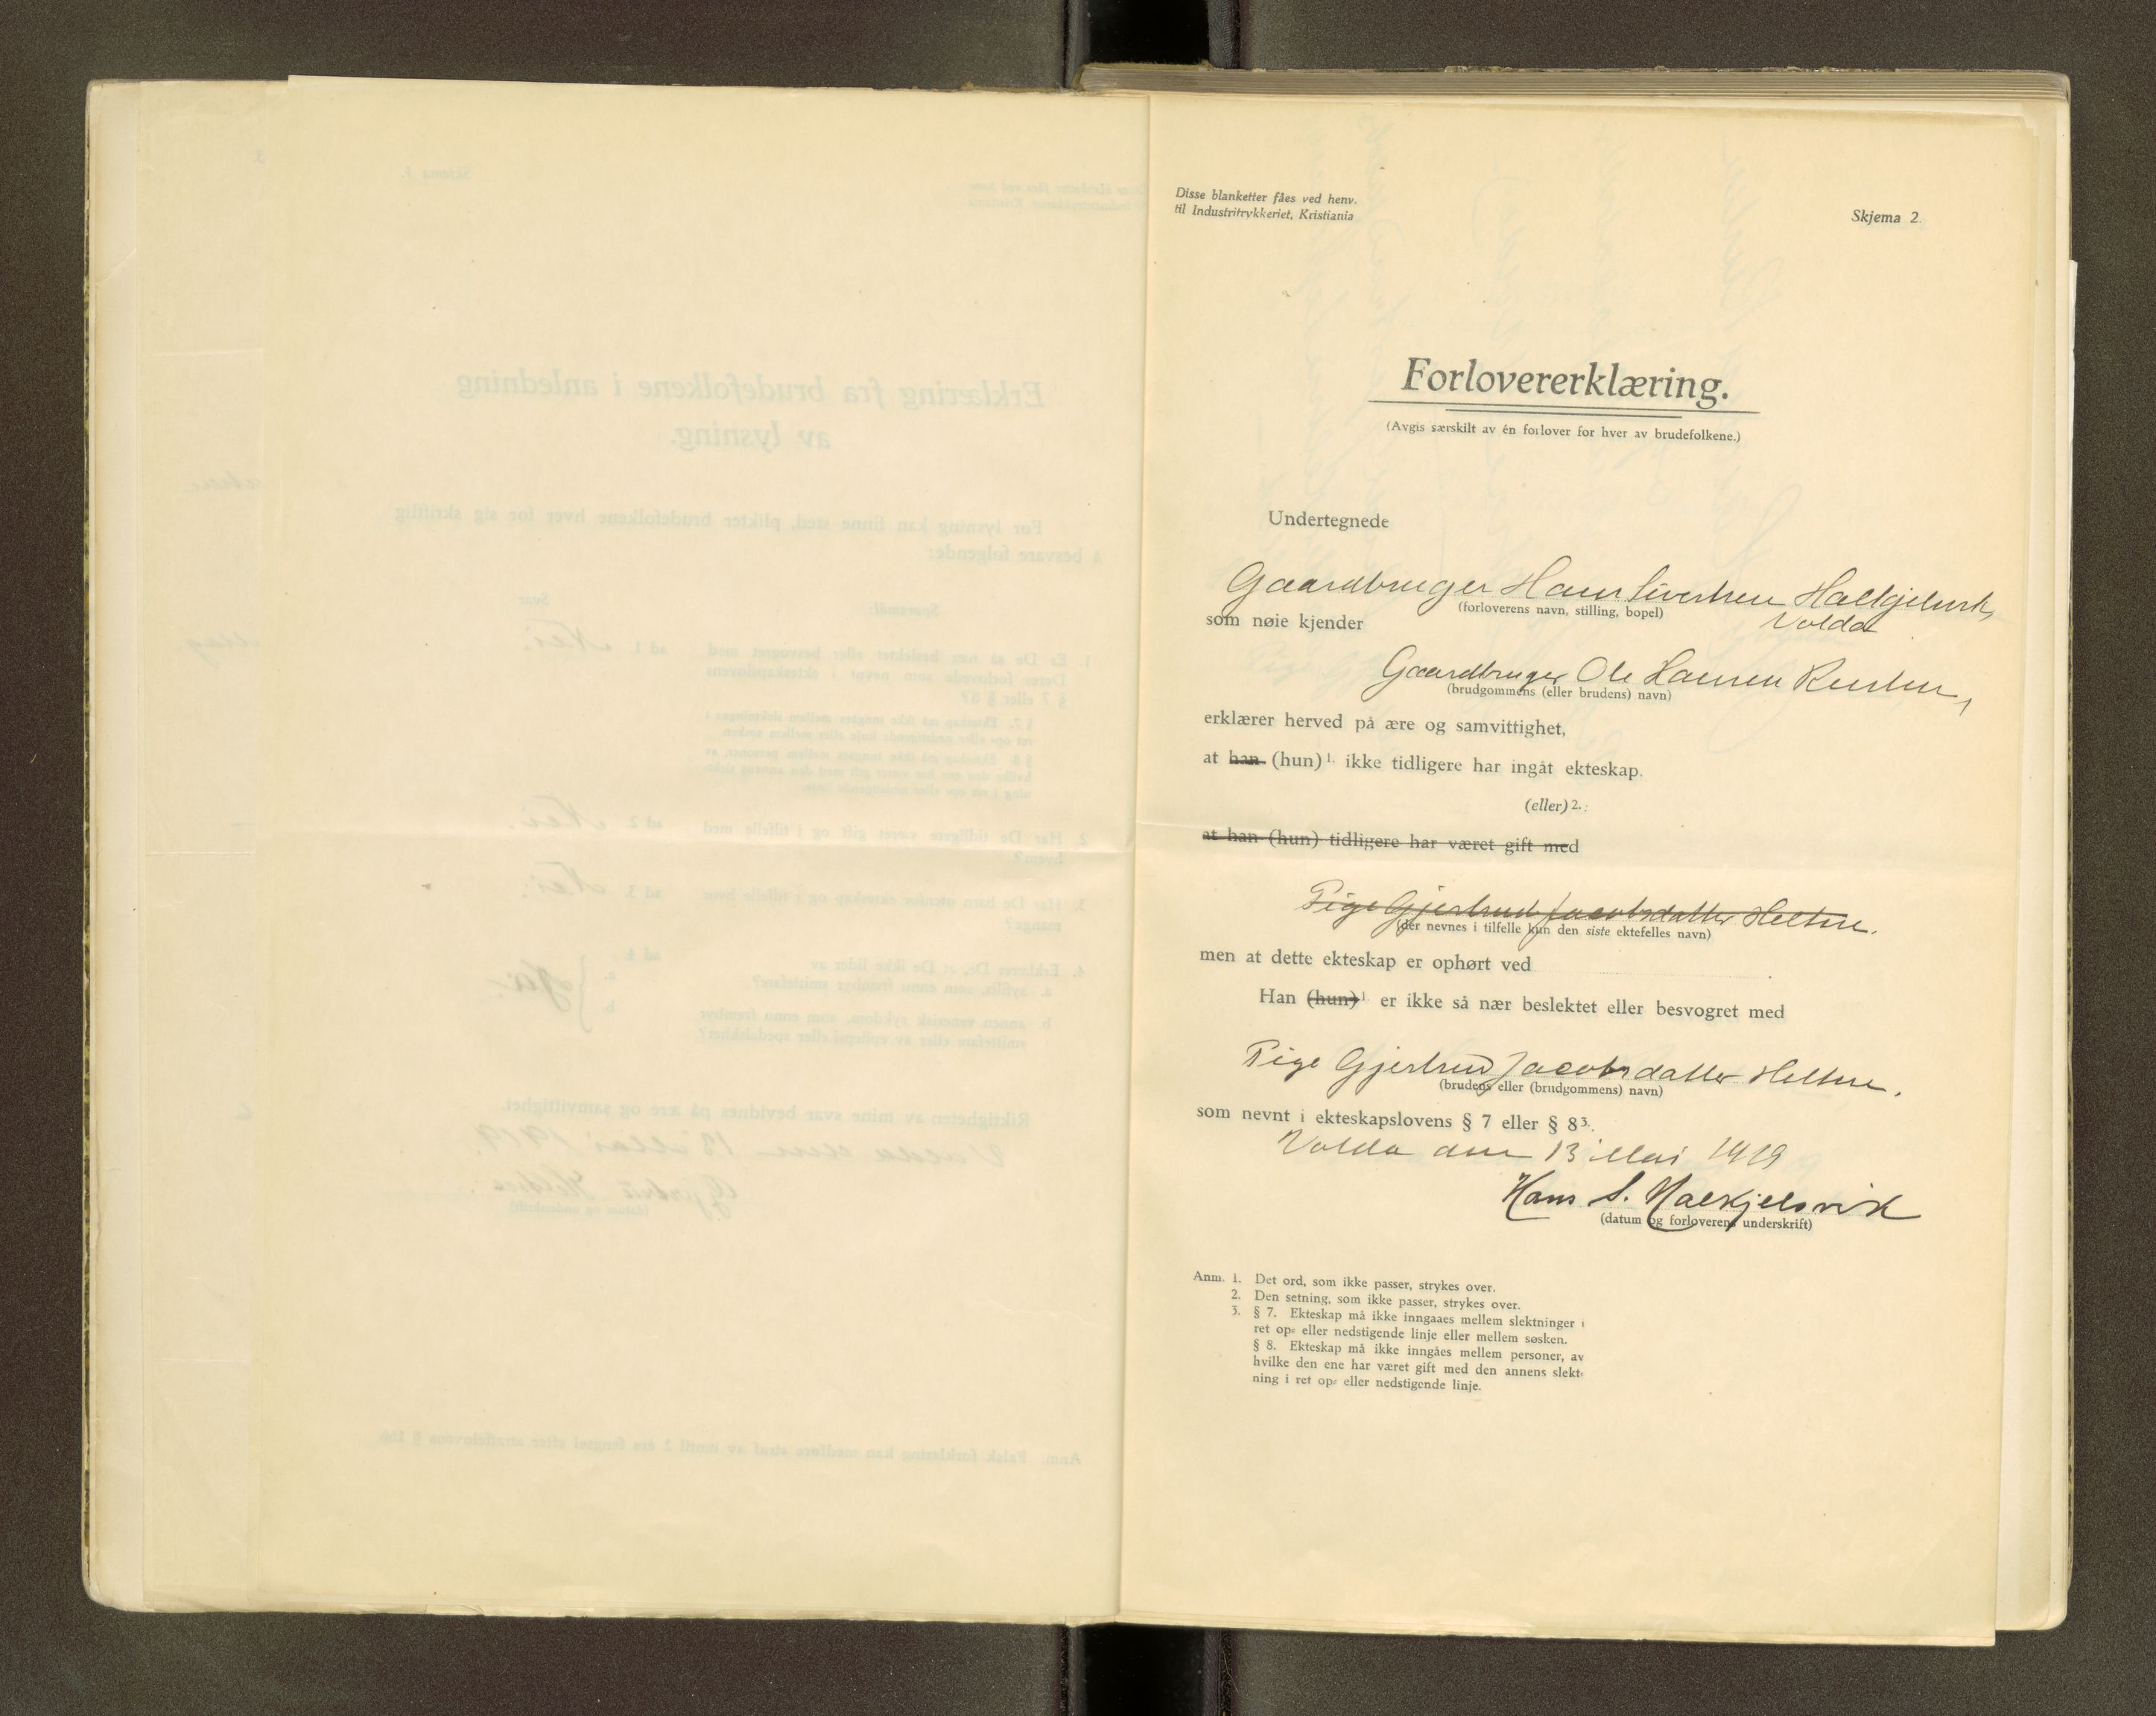 Disse blanketter fåes ved henv.
til Industritrykkeriet, Kristiania
Skjema 2.
Forlovererklæring.
(Avgis særskilt av én forlover for hver av brudefolkene.)
Undertegnede
Gaardbruger Hans Sivertsen
(forloverens navn, stilling, bopel)
som nøie kjender Volda
Gaardbruger Ole Hansen
(brudgommens (eller brudens) navn)
erklærer herved på ære og samvittighet,
at han (hun)1. ikke tidligere har ingåt ekteskap.
(eller)2.:
at han (hun) tidligere har været gift med
Pige Gjertrud Jacobsdatter Heltne.
(der nevnes i tilfelle kun den siste ektefelles navn)
men at dette ekteskap er ophørt ved
Han (hun)1 er ikke så nær beslektet eller besvogret med
Pige Gjertrud Jacobsdatter Heltne.
(brudens eller (brudgommens) navn)
som nevnt i ekteskapslovens § 7 eller § 83.
Volda den 13 Mai 1919
Hans S. Halkjelsvik
(datum og forloverens underskrift)
Anm. 1. Det ord, som ikke passer, strykes over.
2. Den setning, som ikke passer, strykes over.
3. § 7. Ekteskap må ikke inngaaes mellem slektninger i
ret op- eller nedstigende linje eller mellem søsken.
§ 8. Ekteskap må ikke inngåes mellem personer, av
hvilke den ene har været gift med den annens slekt-
ning i ret op- eller nedstigende linje.